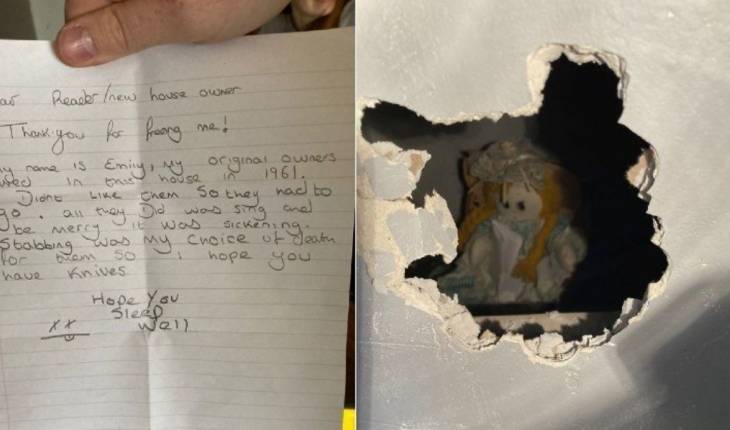 ar Reader/new house owner
Thank you for freeing me!
y name is Emily, my original owners
ved in this house in 1961.
Didnt Like them So they had to
go. all they Did was sing and
be merry it was sickening.
Stabbing was my choice of death
for them so i hope you
have Knives
Hope You
Sleep
Well
xx